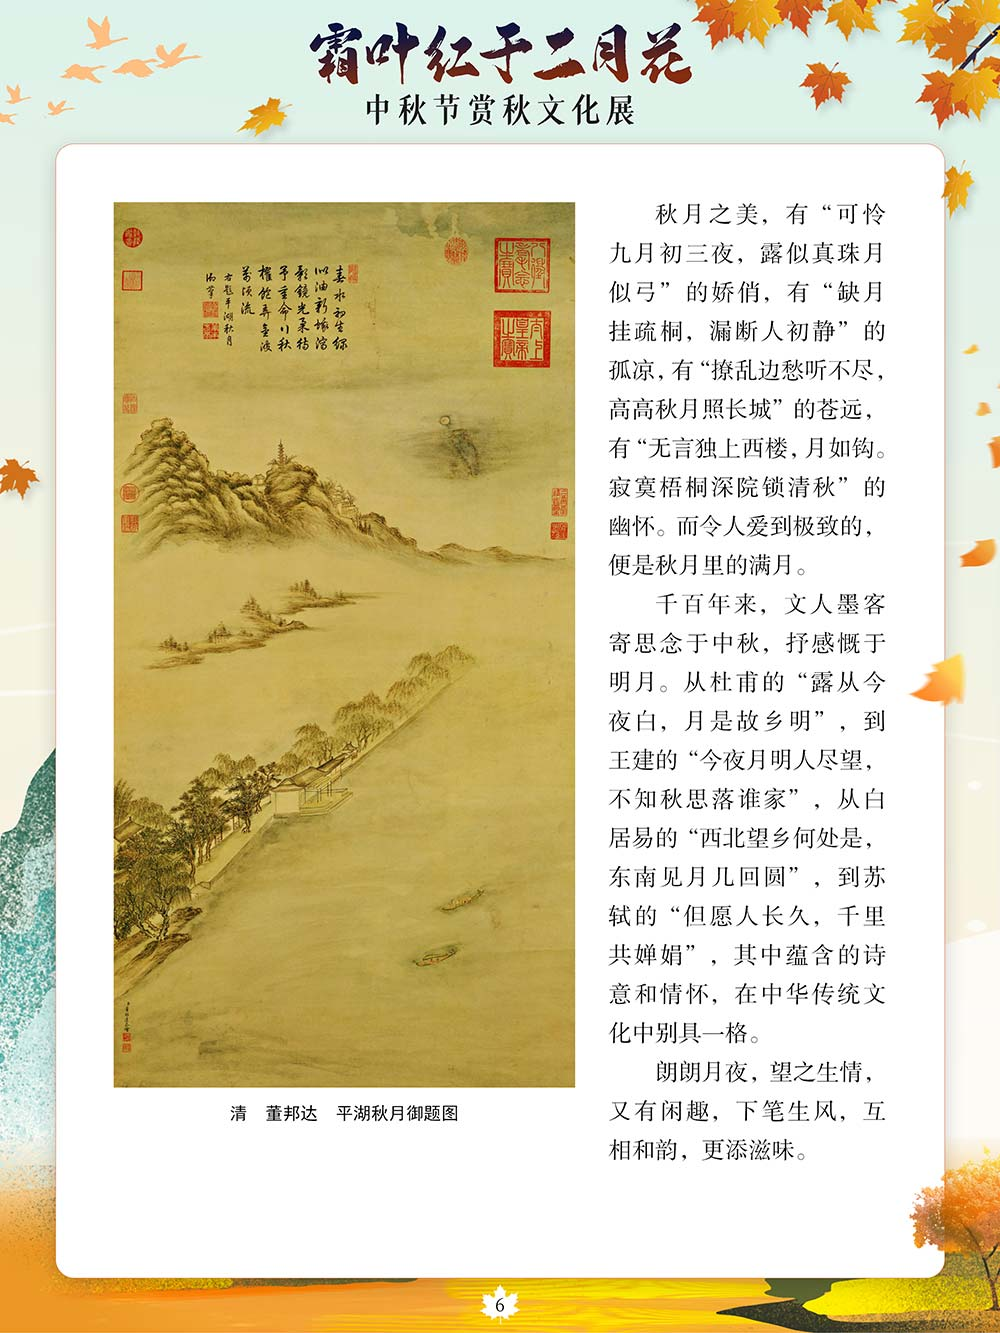 霜叶红于二月花
中秋节赏秋文化展
春水初生绿
似油新蛾泻
影镜光柔待
予重命行秋
櫂饱弄金波
万顷流
右题平湖秋月
御笔
清 董邦达 平湖秋月御题图
秋月之美，有“可怜
九月初三夜，露似真珠月
似弓”的娇俏，有“缺月
挂疏桐，漏断人初静”的
孤凉，有“撩乱边愁听不尽，
高高秋月照长城”的苍远，
有“无言独上西楼，月如钩。
寂寞梧桐深院锁清秋”的
幽怀。而令人爱到极致的，
便是秋月里的满月。
千百年来，文人墨客
寄思念于中秋，抒感慨于
明月。从杜甫的“露从今
夜白，月是故乡明”，到
王建的“今夜月明人尽望，
不知秋思落谁家”，从白
居易的“西北望乡何处是，
东南见月几回圆”，到苏
轼的“但愿人长久，千里
共婵娟”，其中蕴含的诗
意和情怀，在中华传统文
化中别具一格。
朗朗月夜，望之生情，
又有闲趣，下笔生风，互
相和韵，更添滋味。
6